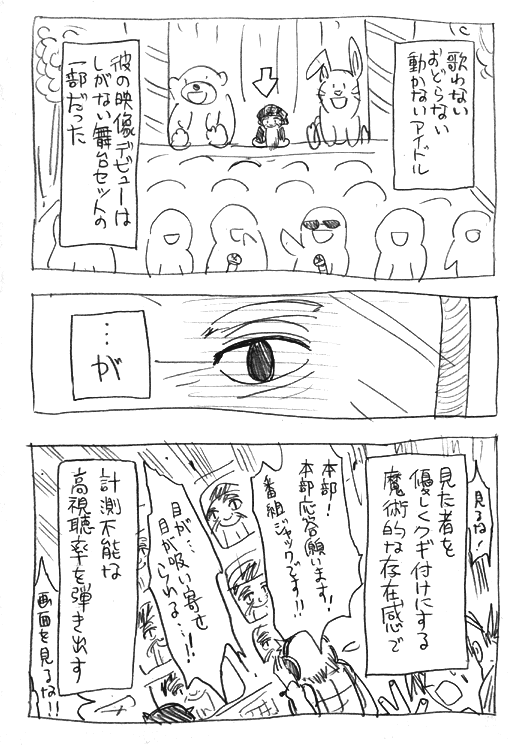 歌わない
おどらない
動かないアイドル
彼の映像デビューは
しがない舞台セットの
一部だった
…が
見るな!
見た者を
優しくクギ付けにする
魔術的な存在感で
本部!
本部応答願います!
番組ジャックです!!
目が…
目が吸い寄せ
られる…!!
計測不能な
高視聴率を弾き出す
画面を見るな!!